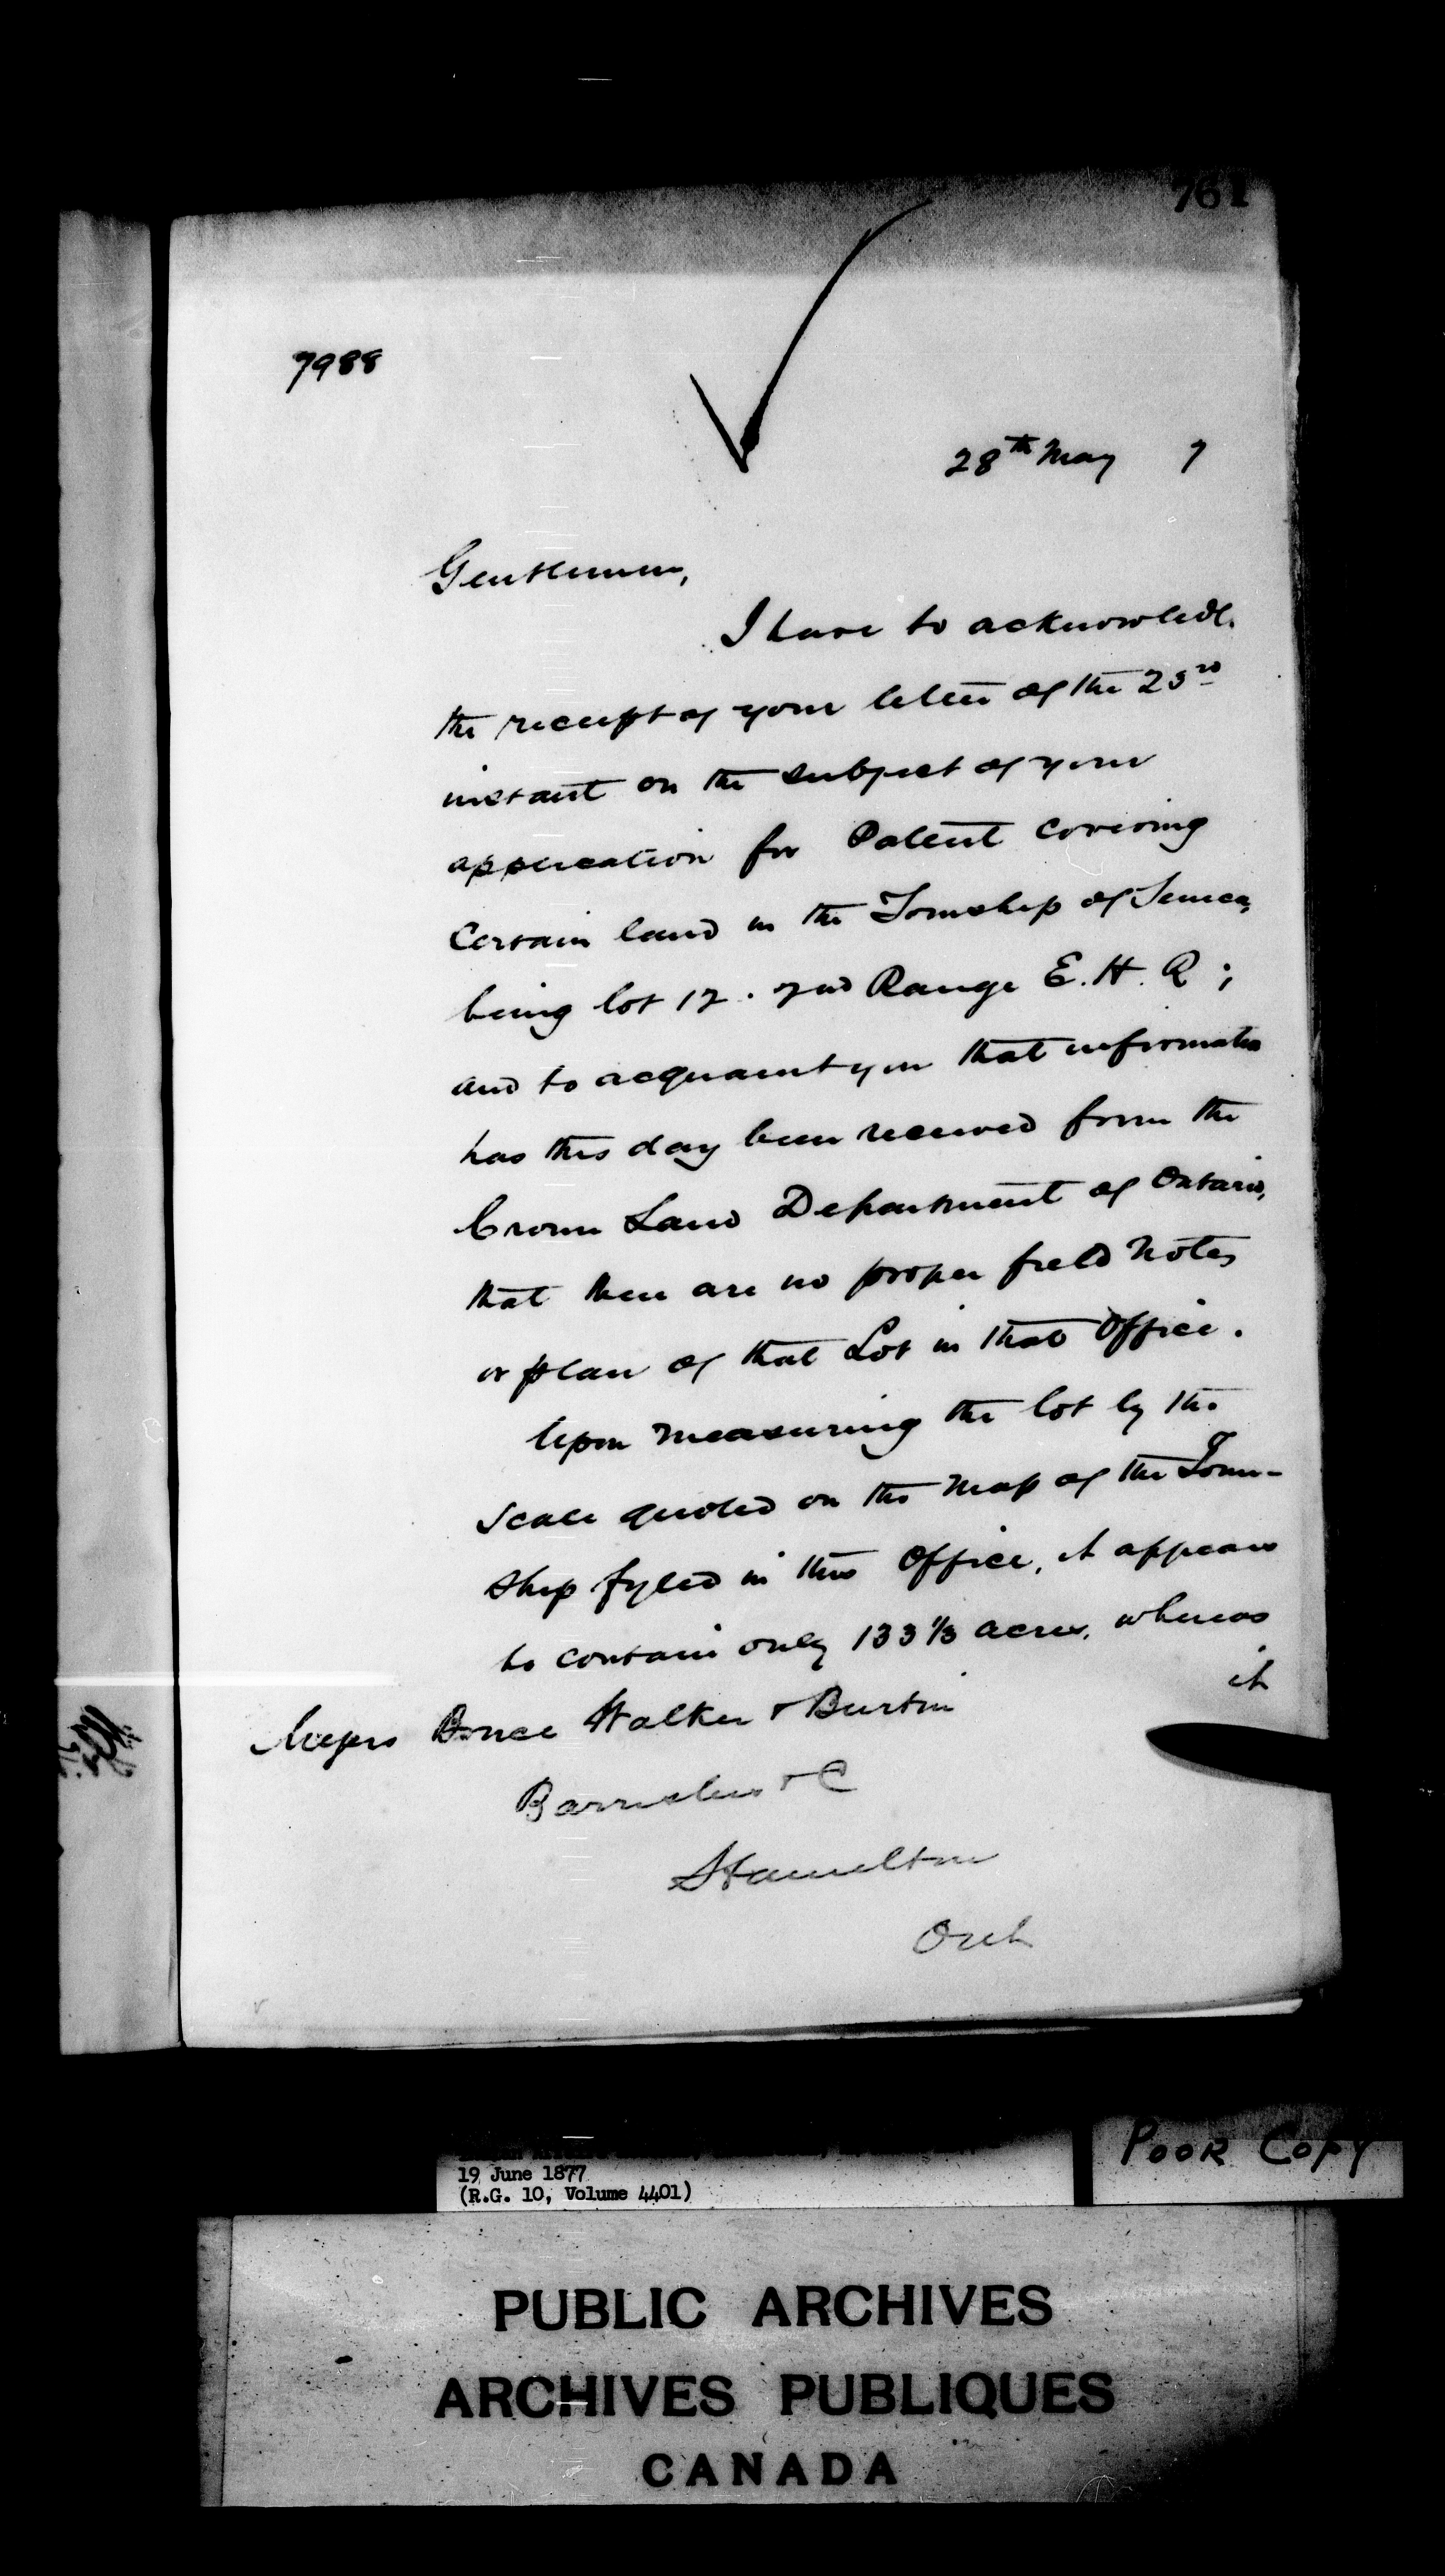 761
7988
28th May 7
Gentlemen,
I have to acknowledge
the receipt of your letter of the 23rd
instant on the subject of your
application for Patent covering
Certain land in the Township of Seneca,
being lot 12. 2nd Range E. H. R;
and to acquaint you that information
has this day been received from the
Crown Land Department of Ontario,
that there are no proper field notes
or plan of that Lot in that Office.
Upon measuring the lot by the
scale quoted on the map of the Town-
ship fyled in this Office, it appears
to contain only 133 1/3 acres, whereas
it
Messrs Bruce Walker & Burton
Barristers & C
Hamilton
Ont
POOR COPY
19 June 1877
(R.G. 10, Volume 4401)
PUBLIC ARCHIVES
ARCHIVES PUBLIQUES
CANADA